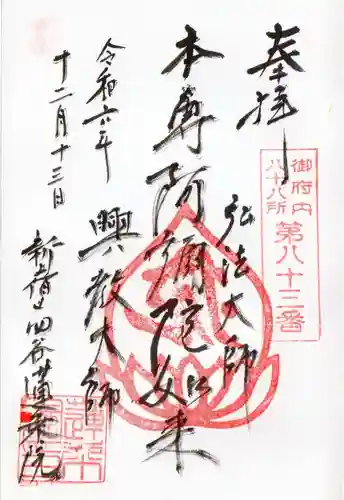 奉拝
御府内
八十八所
第八十三番
弘法大師
本尊阿彌陀如来
興教大師
令和六年
十二月十三日
四谷蓮乗院